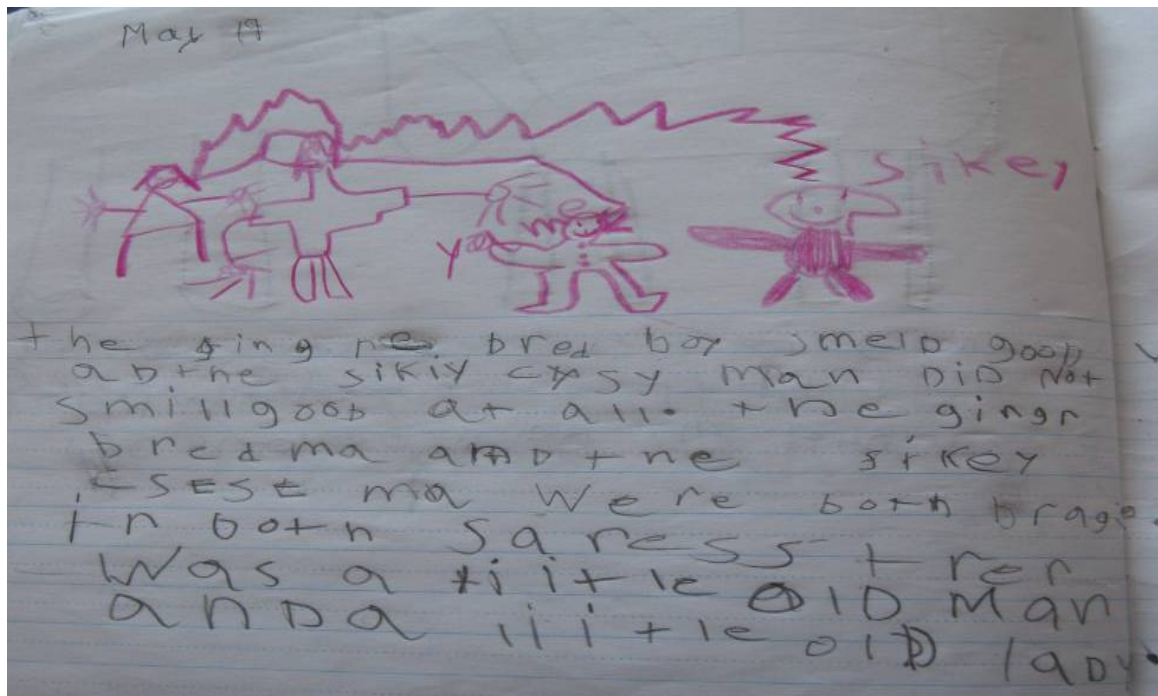 May 19
sikey
me
the gingre bred boy smelD gooD
aDthe sikiy cysy man DiD Not
smillgooD at all. the gingr
bred ma anD the sikey
csese ma were both brage.
in both saress trer
was a tiitle OlD Man
anDa liitle olD laDy.